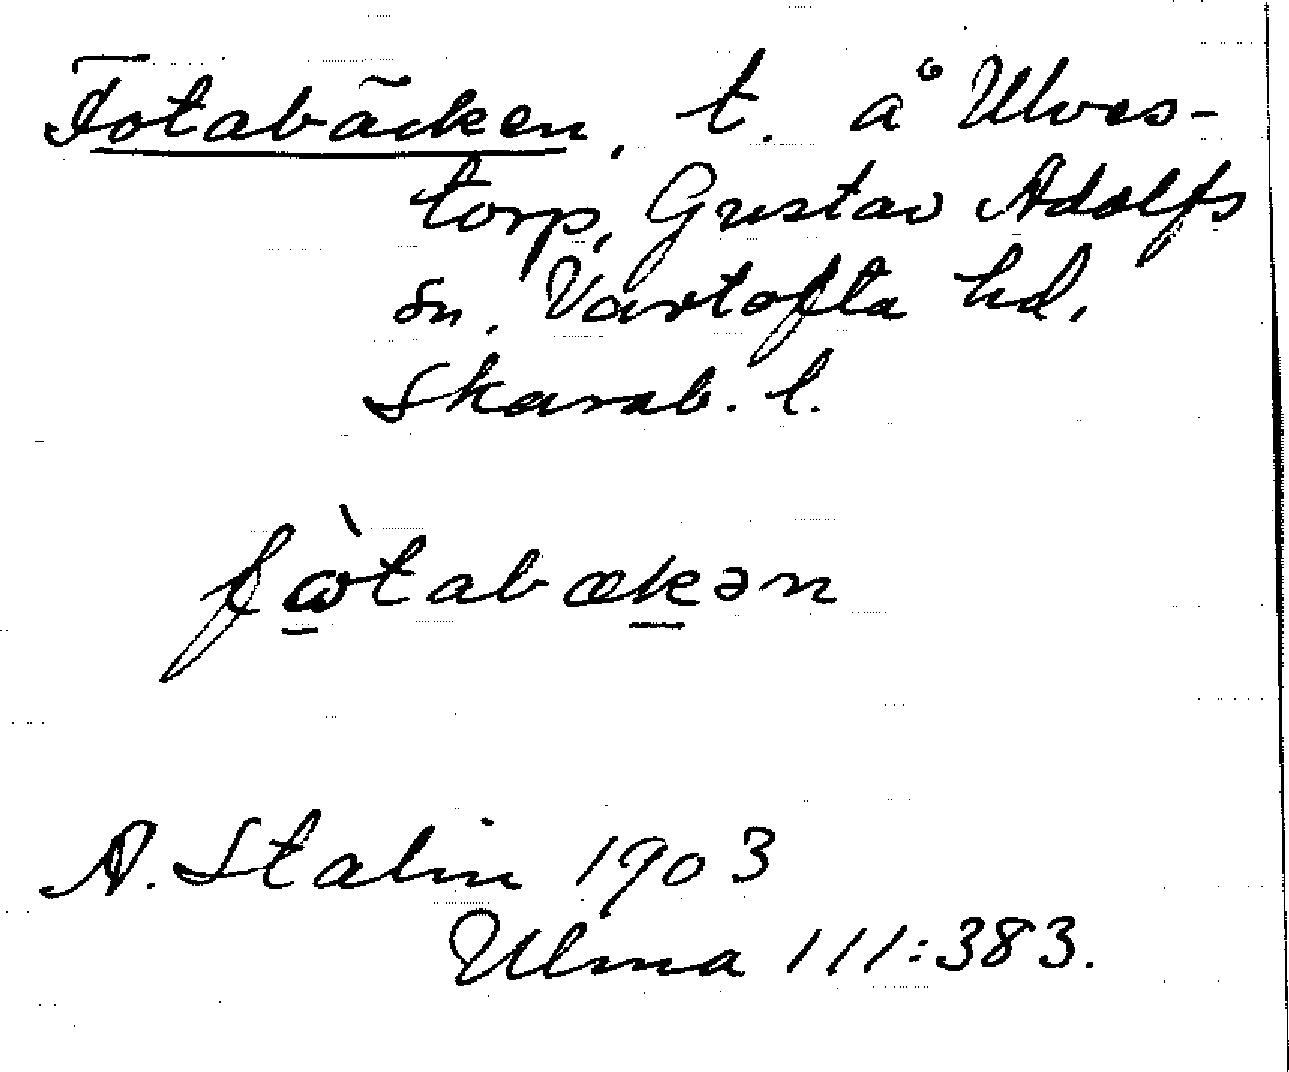 Fotabäcken, t. å Ulves-
torp, Gustav Adolfs
sn, Vartofta hd,
Skarab. l.
fωtabækən
A. Stalin 1903
Ulma 111:383.